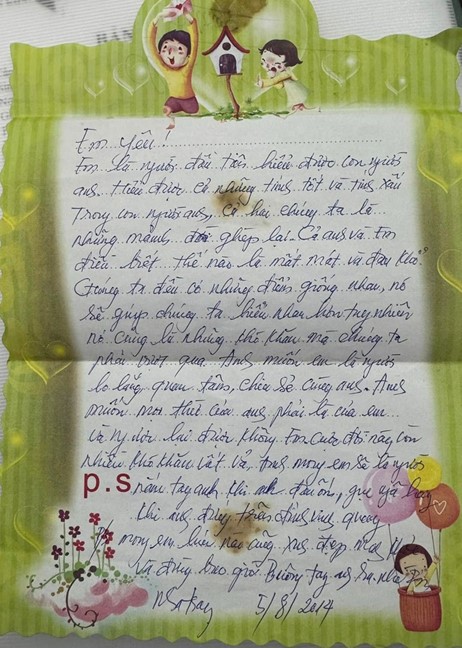 Em yêu!
Em là người đầu tiên hiểu được con người
anh. Hiểu được cả những tính tốt và tính xấu
Trong con người anh, cả hai chúng ta là
những mảnh đời ghép lại. Cả anh và em
điều biết thế nào là mất mát và đau khổ
Chúng ta đều có những điểm giống nhau, nó
sẽ giúp chúng ta hiểu nhau hơn tuy nhiên
nó cũng là những khó khăn mà chúng ta
phải vượt qua. Anh muốn em là người
lo lắng quan tâm, chia sẻ cùng anh. Anh
muốn mọi thứ của anh phải là của em
và ngược lại được không Em cuộc đời này còn
nhiều khó khăn vất vả, anh mong em sẽ là người
p.s
nắm tay anh khi anh đau ốm, già yếu hay
khi anh đứng trên đỉnh vinh quang
mong em lúc nào cũng xinh đẹp
và đừng bao giờ Buông tay anh ra
5/8/2014